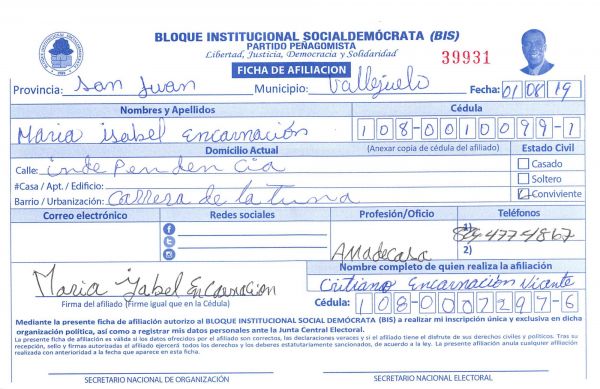 BLOQUE INSTITUCIONAL SOCIALDEMÓCRATA (BIS)
PARTIDO PEÑAGOMISTA
Libertad, Justicia, Democracia y Solidaridad
39931
FICHA DE AFILIACION
Provincia: San Juan Municipio: Vallejuelo Fecha: 01/08/19
Nombres y Apellidos Cédula
Maria isabel Encarnación 108-0010099-1
Domicilio Actual (Anexar copia de cédula del afiliado) Estado Civil
Calle: independencia Casado
#Casa / Apt. / Edificio: Soltero
Barrio / Urbanización: Carrera de la tuna Conviviente
Correo electrónico Redes sociales Profesión/Oficio Teléfonos
1) 8294774867
2)
Amadecasa
Nombre completo de quien realiza la afiliación
Maria Isabel Encarnacion Critiano Encarnación Viante
Firma del afiliado (Firme igual que en la Cédula) Cédula: 108-0007297-6
Mediante la presente ficha de afiliación autorizo al BLOQUE INSTITUCIONAL SOCIAL DEMÓCRATA (BIS) a realizar mi inscripción única y exclusiva en dicha
organización política, así como a registrar mis datos personales ante la Junta Central Electoral.
La presente ficha de afiliación es válida si los datos ofrecidos por el afiliado son correctos, las declaraciones veraces y si el afiliado tiene el disfrute de sus derechos civiles y políticos. Tras su
recepción, sello y firmas autorizadas el afiliado ejercerá todos los derechos y los deberes estatutariamente sancionados, de acuerdo a la ley. La presente afiliación anula cualquier afiliación
realizada con anterioridad a la fecha que aparece en esta ficha.
SECRETARIO NACIONAL DE ORGANIZACIÓN SECRETARIO NACIONAL ELECTORAL